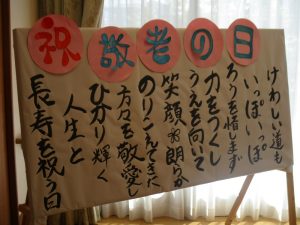 祝敬老の日
けわしい道も
いっぽいっぽ
ろうを惜まず
力をつくし
うえを向いて
笑顔朗らか
のりこえてきた
方々を敬愛し
ひかり輝く
人生と
長寿を祝う日